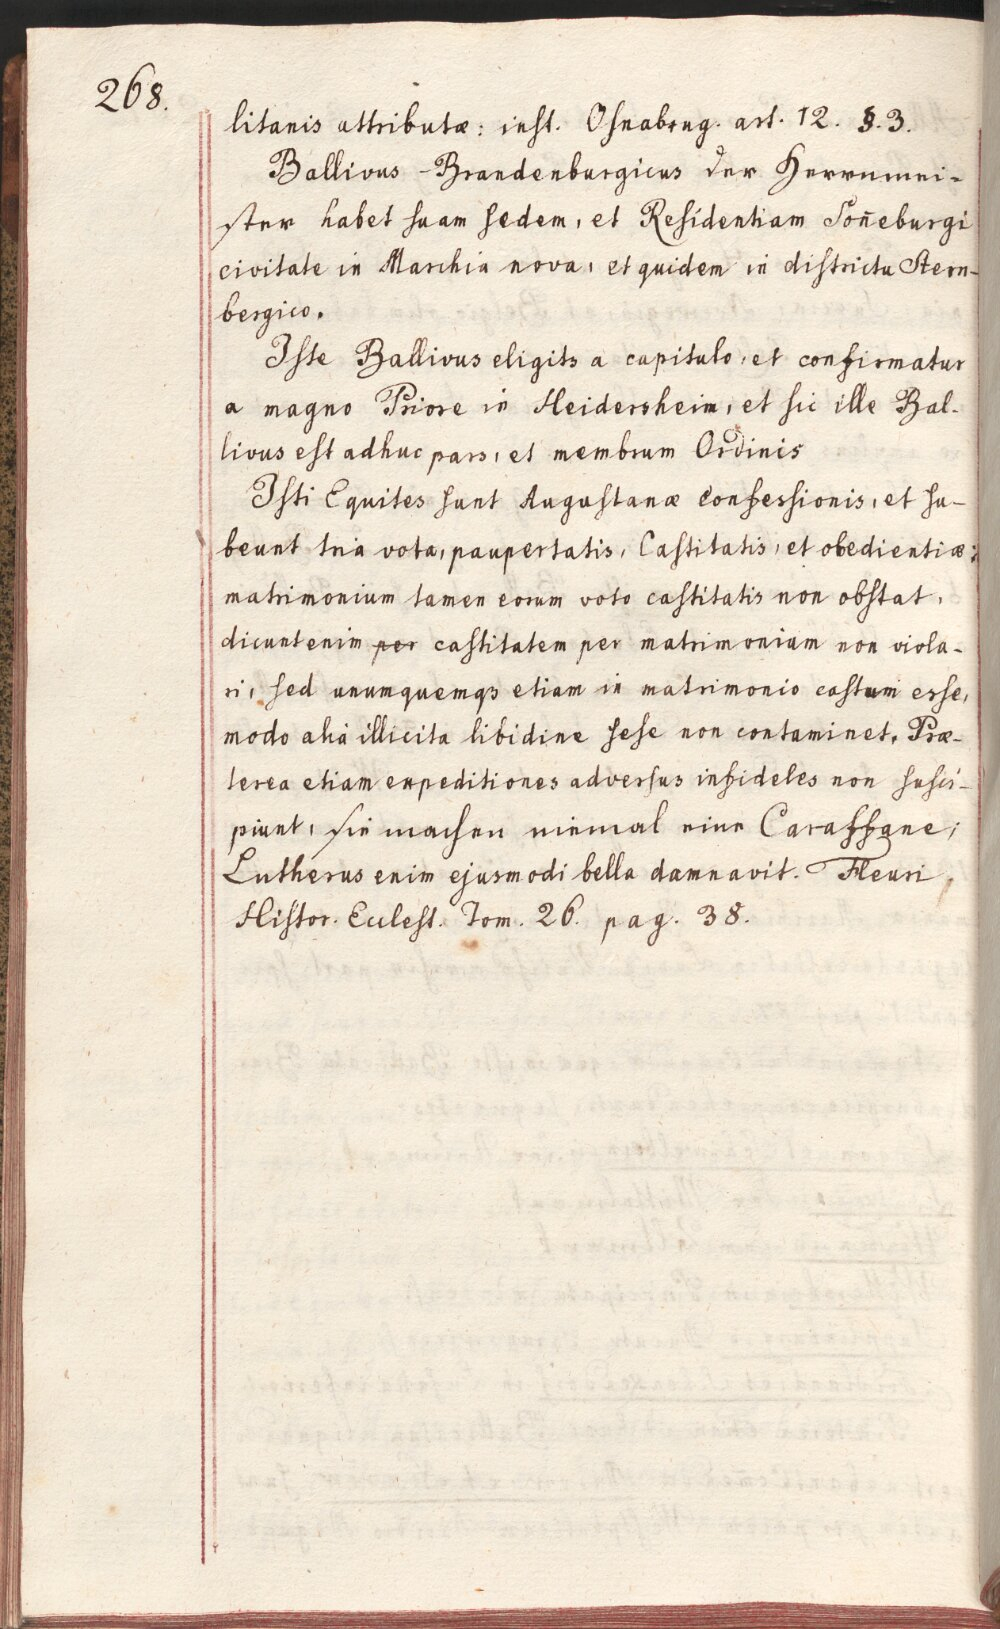 268.
litanis attributæ: inst. Osnabrug. art. 12. §. 3.
Ballivus-Brandenburgicus der Herrnmei-
ster habet suam sedem, et Residentiam Soñeburgi
civitate in Marchia nova, et quidem in districtu Stern-
bergico.
Iste Ballivus eligitr a capitulo, et confirmatur
a magno Priore in Heidersheim, et sic ille Bal-
livus est adhuc pars, et membrum Ordinis
Isti Equites sunt Augustanæ confessionis, et ha-
beunt tria vota, paupertatis, Castitatis, et obedientiæ:
matrimonium tamen eorum voto castitatis non obstat,
dicunt enim per castitatem per matrimonium non viola-
ri, sed unumquemqȝ etiam in matrimonio castum esse,
modo aliâ illicita libidine sese non contaminet. Præ-
terea etiam expeditiones adversus infideles non susci-
piunt, sie machen niemal eine Caraffane;
Lutherus enim ejusmodi bella damnavit. Fleuri
Histor. Eclest. Tom. 26. pag. 38.